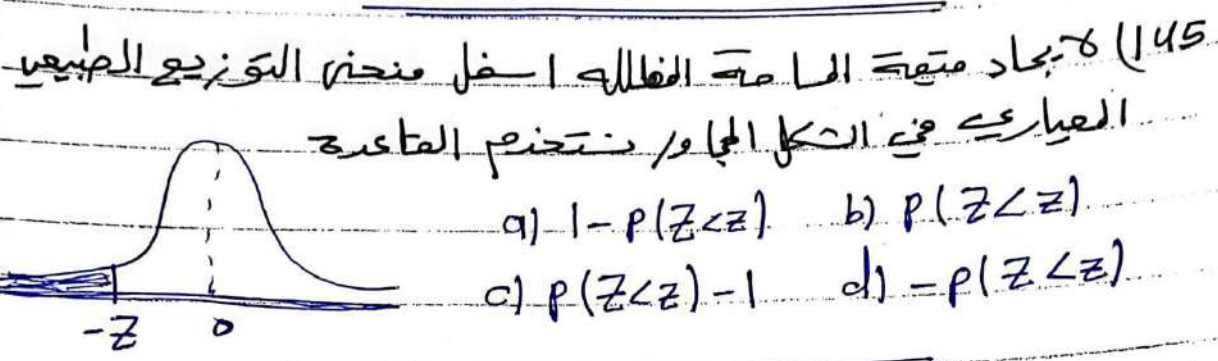 145) لايجاد قيمة المساحة المظلله اسفل منحنى التوزيع الطبيعي
المعياري في الشكل المجاور نستخدم القاعدة
a) 1-P(Z<z) b) P(Z<z)
c) P(Z<z)-1 d) -P(Z<z)
-Z 0